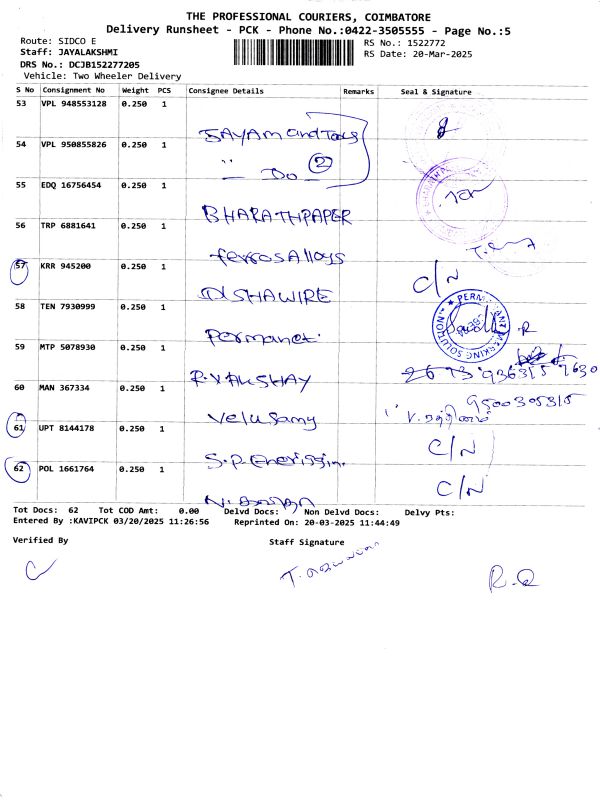 THE PROFESSIONAL COURIERS, COIMBATORE
Delivery Runsheet - PCK - Phone No.:0422-3505555 - Page No.:5
Route: SIDCO E
RS No.: 1522772
Staff: JAYALAKSHMI
RS Date: 20-Mar-2025
DRS No.: DCJB152277205
Vehicle: Two Wheeler Delivery
S No Consignment No Weight PCS Consignee Details Remarks Seal & Signature
53 VPL 948553128 0.250 1
JAYAM and Tools
54 VPL 950855826 0.250 1
" — Do — 2
55 EDQ 16756454 0.250 1
BHARATHPAPER
56 TRP 6881641 0.250 1
ferrosAlloys
57 KRR 945200 0.250 1 C/N
DISHAWIRE
58 TEN 7930999 0.250 1
Permanet.
PERMANENT MARKING SOLUTION
59 MTP 5078930 0.250 1
R.VAKSHAY
60 MAN 367334 0.250 1
9500305315
Velusamy
61 UPT 8144178 0.250 1 C/N
62 POL 1661764 0.250 1 C/N
Tot Docs: 62 Tot COD Amt: 0.00 Delvd Docs: Non Delvd Docs: Delvy Pts:
Entered By :KAVIPCK 03/20/2025 11:26:56 Reprinted On: 20-03-2025 11:44:49
Verified By Staff Signature